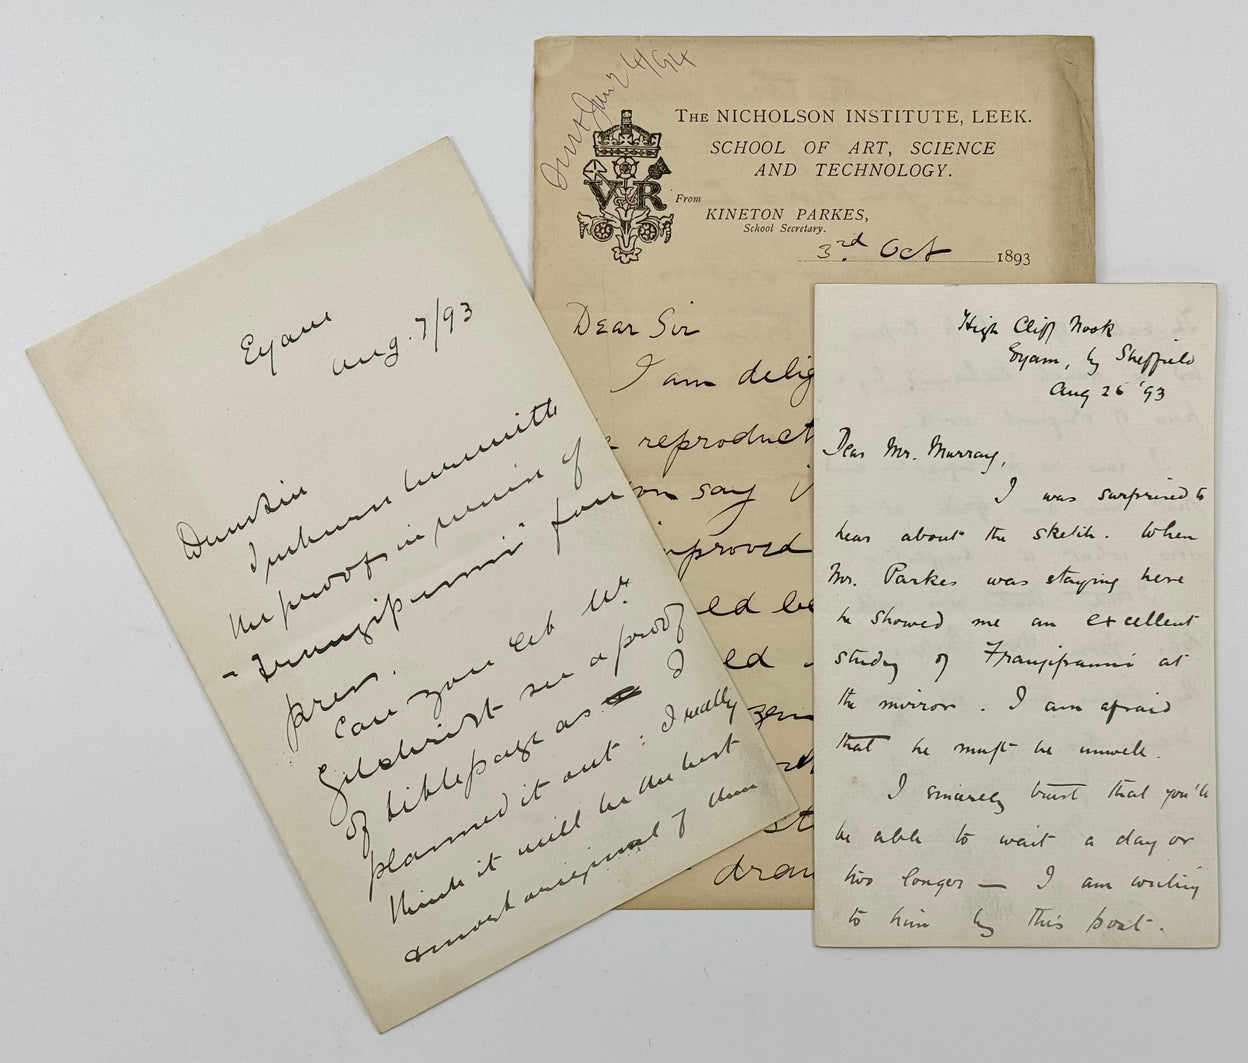 Eyam
Aug. 7/93
Dear Sir
I return herewith
the proofs in review of
- Frangipanni for
press.
Can you let Mr
Gilchrist see a proof
of titlepage as I
planned it out: I really
think it will be the best
& most original of them
Jan 24/94
THE NICHOLSON INSTITUTE, LEEK.
SCHOOL OF ART, SCIENCE
AND TECHNOLOGY.
VR
From
KINETON PARKES,
School Secretary.
3rd. Oct 1893
Dear Sir
I am delig
reproduct
say
mproved
ed be
ed
dram
High Cliff Nook
Eyam, by Sheffield
Aug 26 '93
Dear Mr. Murray,
I was surprised to
hear about the sketch. When
Mr. Parkes was staying here
he showed me an excellent
study of Frangipanni at
the mirror. I am afraid
that he must be unwell.
I sincerely trust that you'll
be able to wait a day or
two longer — I am writing
to him by this post.